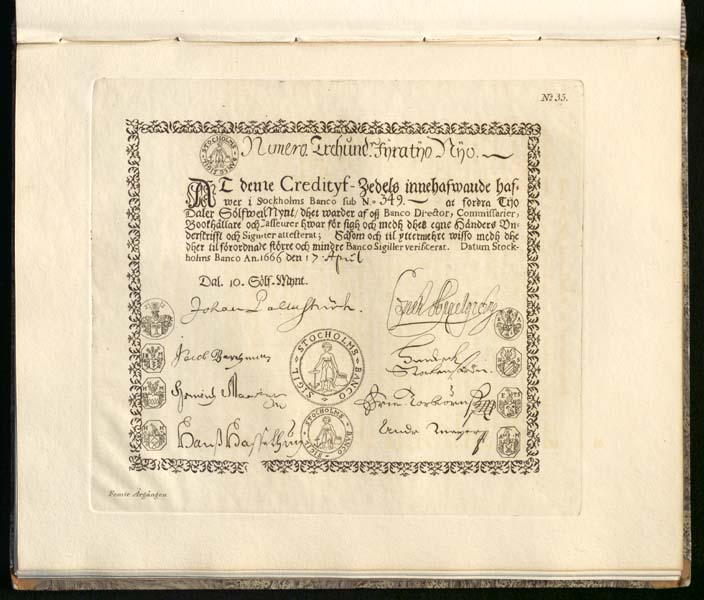 Nº 35.
STOCHOLMS BANCO SIGIL
Numero. Trehund. Fyratijo Nijo.
AT denne Credityf-Zedels innehafwande haf-
wer i Stockholms Banco sub N.o 349. at fordra Tijo
Daler Sölfwer Mynt, dhet warder af oß Banco Director, Commissarier,
Bookhållare och Casseurer hwar för sigh och medh dheß egne Händers Un-
derskrifft och Signeter attesterat; Såsom och til yttermehre wisso medh dhe
dher til förordnade större och mindre Banco Sigiller verificerat. Datum Stock-
holms Banco An. 1666 den 17. April
Dal. 10. Sölf-Mynt.
Johan Palmstruch.
STOCHOLMS BANCO SIGIL
Jacob
Hindrich
Hans
STOCHOLMS BANCO SIGIL
Femte Årgången